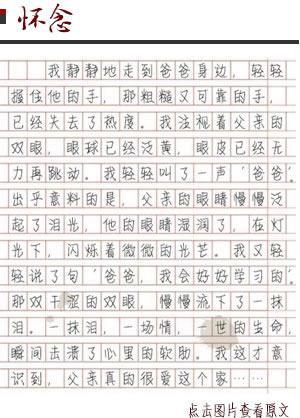 怀念
我静静地走到爸爸身边，轻轻
握住他的手，那粗糙又可靠的手，
已经失去了热度。我注视着父亲的
双眼，眼球已经泛黄，眼皮已经无
力再跳动。我轻轻叫了一声‘爸爸’。
出乎意料的是，父亲的眼睛慢慢泛
起了泪光，他的眼睛湿润了，在灯
光下，闪烁着微微的光芒。我又轻
轻说了句‘爸爸，我会好好学习的’。
那双干涩的双眼，慢慢流下了一抹
泪。一抹泪，一场情，一世的生命，
瞬间击溃了心里的软肋。我这才意
识到，父亲真的很爱这个家……
点击图片查看原文